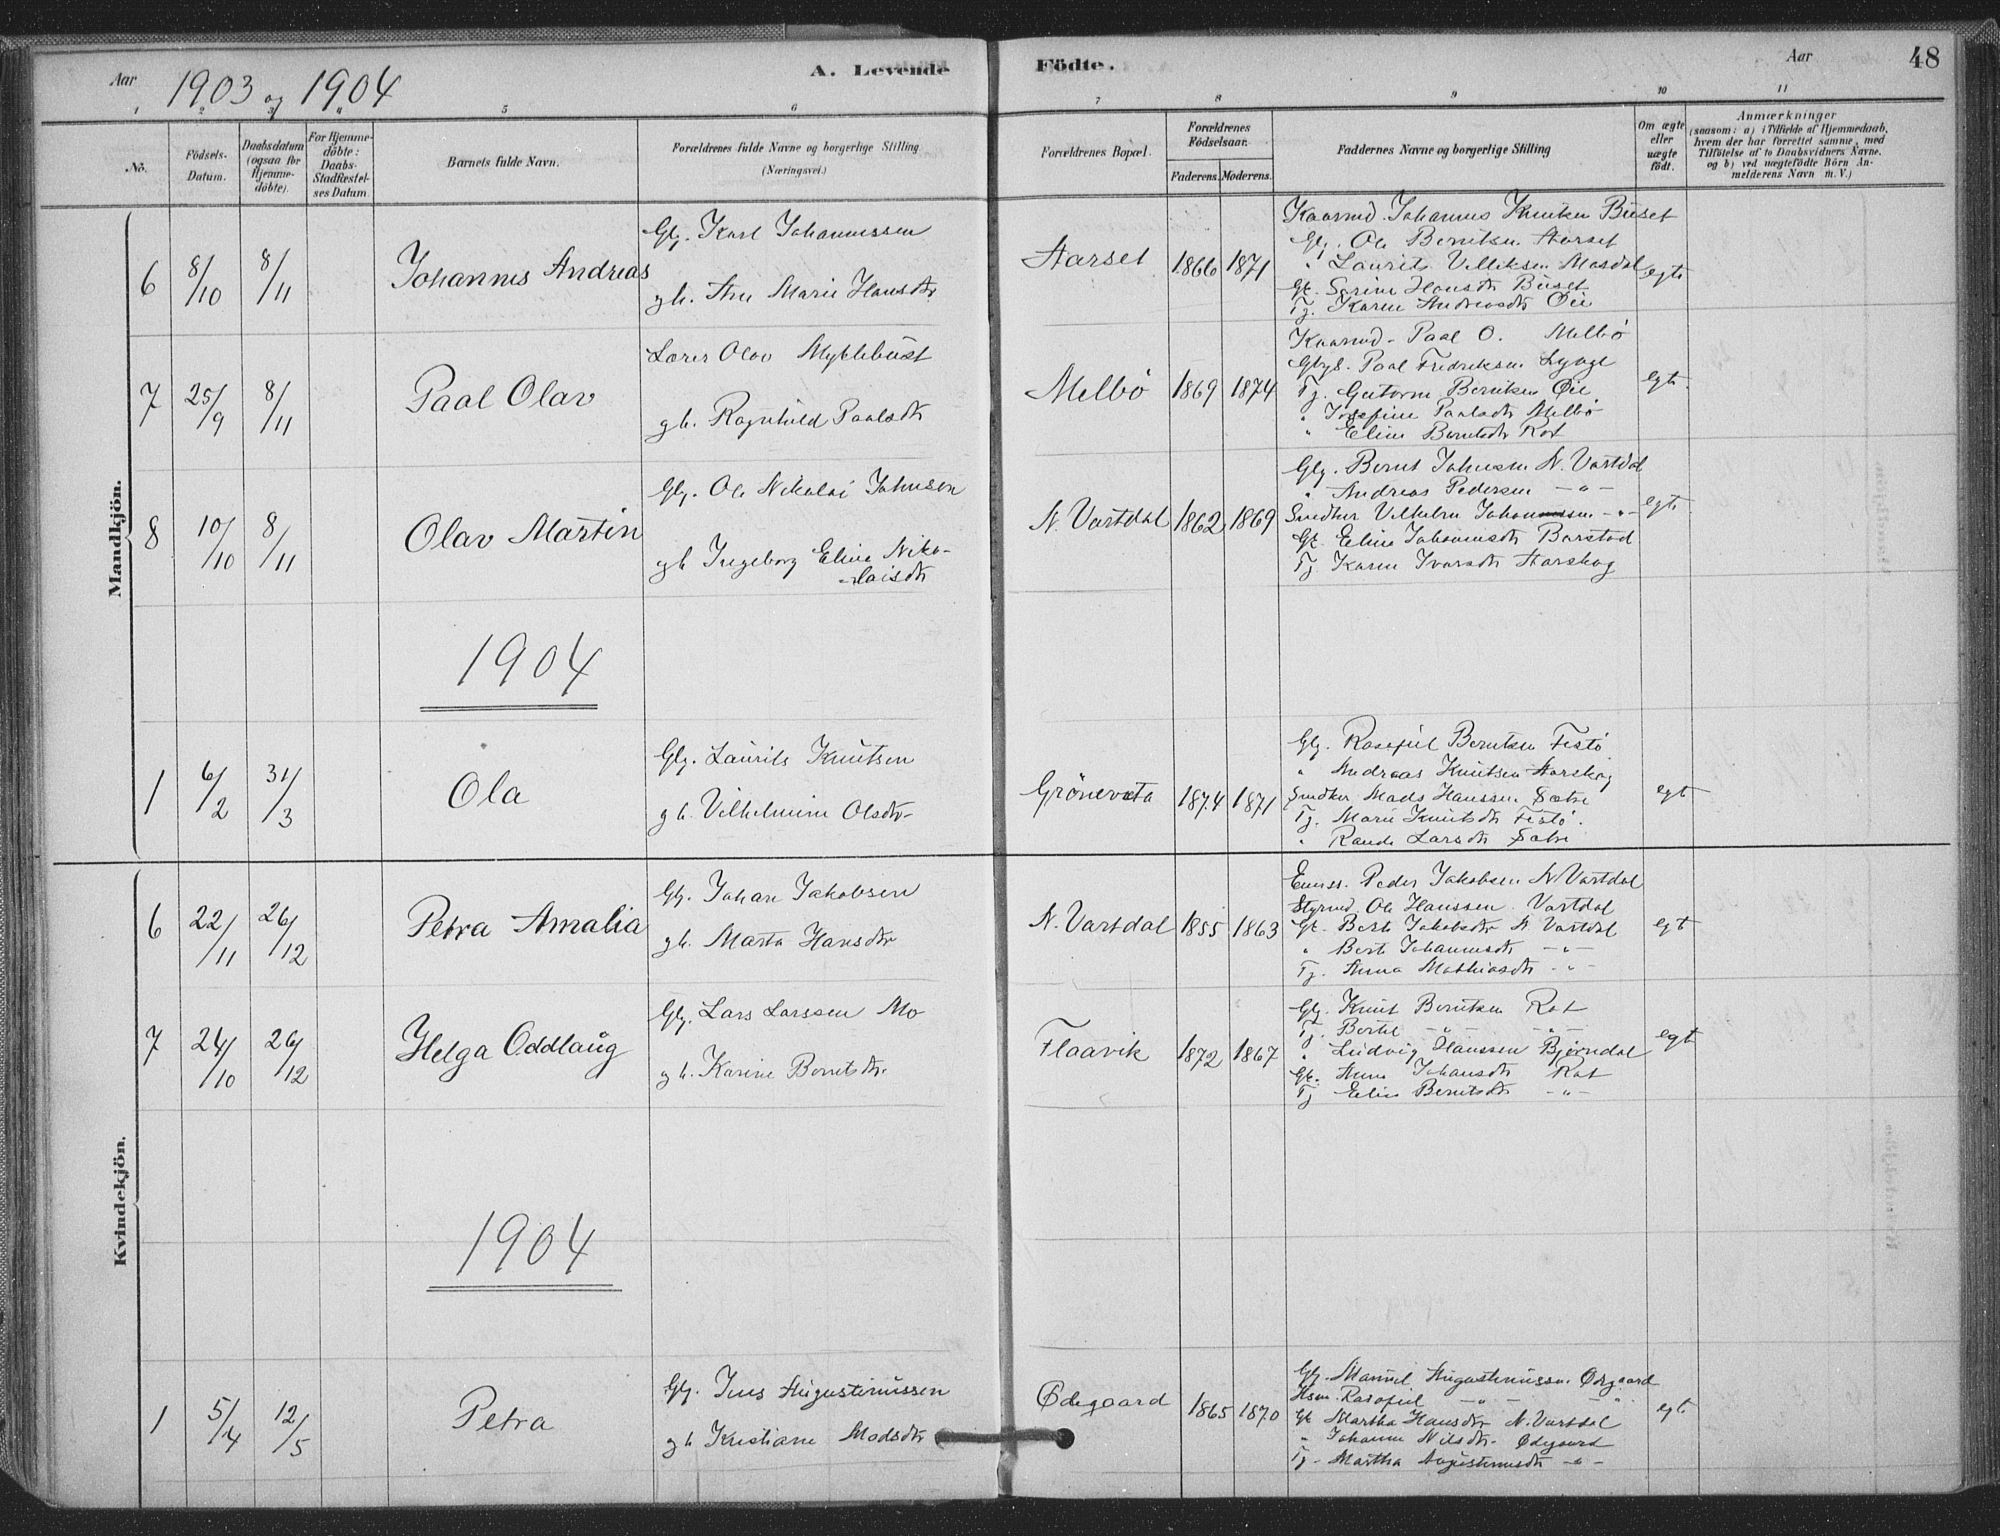 Aar 1903 og 1904 A. Levende Födte. Aar 48
1 2 3 4 5 6 7 8 9 10 11
No.
Födsels-Datum.
Daabsdatum (ogsaa for Hjemme-döbte).
For Hjemme-döbte: Daabs-Stadfæstelses Datum
Barnets fulde Navn.
Forældrenes fulde Navne og borgerlige Stilling (Næringsvei.)
Forældrenes Bopæl.
Forældrenes Födselsaar.
Faderens. Moderens.
Faddernes Navne og borgerlige Stilling
Om ægte eller uægte födt.
Anmærkninger
(saasom: a) i Tilfælde af Hjemmedaab,
hvem der har forrettet samme, med
Tilföielse af to Daabsvidners Navne,
og b) ved uægtefödte Börn An-
melderens Navn m. V.)
Mandkjön.
6 8/10 8/11 Johannes Andreas
Glg. Karl Johannessen
gh. Ane Marie Hansdtr
Aarset 1866 1871
Kaarmd. Johannes Knutsen Buset
Glg. Ole Berntsen Aarset
" Laurits Villiksen Masdal
Gk. Sarine Hansdtr Buset
Tj. Karen Andreasdtr Øie
egte
7 25/9 8/11 Paal Olav
Lærer Olav Myklebust
gh. Ragnhild Paalsdtr
Melbö 1869 1874
Kaarmd. Paal O. Melbö
Paal Fredriksen Lynge
Tj. Guttorm Berntsen Øie
" Josefine Paalsdtr Melbö
" Eline Berntsdtr Rot
egte
8 10/10 8/11 Olav Martin
Glg. Ole Nikolai Johnsen
gh Ingeborg Eline Niko-
laisdtr
N. Vartdal 1862 1869
Glg. Bernt Johnsen N. Vartdal
" Andreas Pedersen — " —
Snedker Vilhelm Johannessen — " —
Gk. Eline Johannesdtr Barstad
Tj. Karen Ivarsdtr Aarskog
egte
1904
1 6/2 31/3 Ola
Glg. Laurits Knutsen
gh. Vilhelmine Olsdtr
Grönevæta 1874 1871
Glg. Rasofiel Berntsen Festö
" Andreas Knutsen Aarskog
Snedker Mads Hanssen Sætre
Tj. Marie Knutsdtr Festö.
" Rande Larsdtr Sætre
egt
Kvindekjön.
6 22/11 26/12 Petra Amalia
Glg. Johan Jakobsen
gh. Marta Hansdtr
N. Vartdal 1855 1863
Peder Jakobsen N Vartdal
Styrmd. Ole Hanssen Vartdal
Gk. Berte Jakobsdtr N Vartdal
" Berte Johannesdtr — " —
Tj. Anna Mathiasdtr — " —
egt
7 24/10 26/12 Helga Oddlaug
Glg. Lars Larssen Mo
gh. Karine Berntsdtr
Flaavik 1872 1867
Glg. Knut Berntsen Rot
Tj. Bertel — " — — " —
" Ludvig Hanssen Bjørndal
Gk. Anne Johansdtr Rot
Tj Eline Berntsdtr — " —
egt
1904
1 5/4 12/5 Petra
Glg. Jens Augustinussen
gh Kristiane Madsdtr
Ødegaard 1865 1870
Glg. Manuel Augustinussen Ødegaard
Hsm. Rasofiel — " — — " —
Gk Martha Hansdtr N. Vartdal
" Johanne Nilsdtr Ødegaard
Tj. Martha Augustinusdtr — " —
egt.